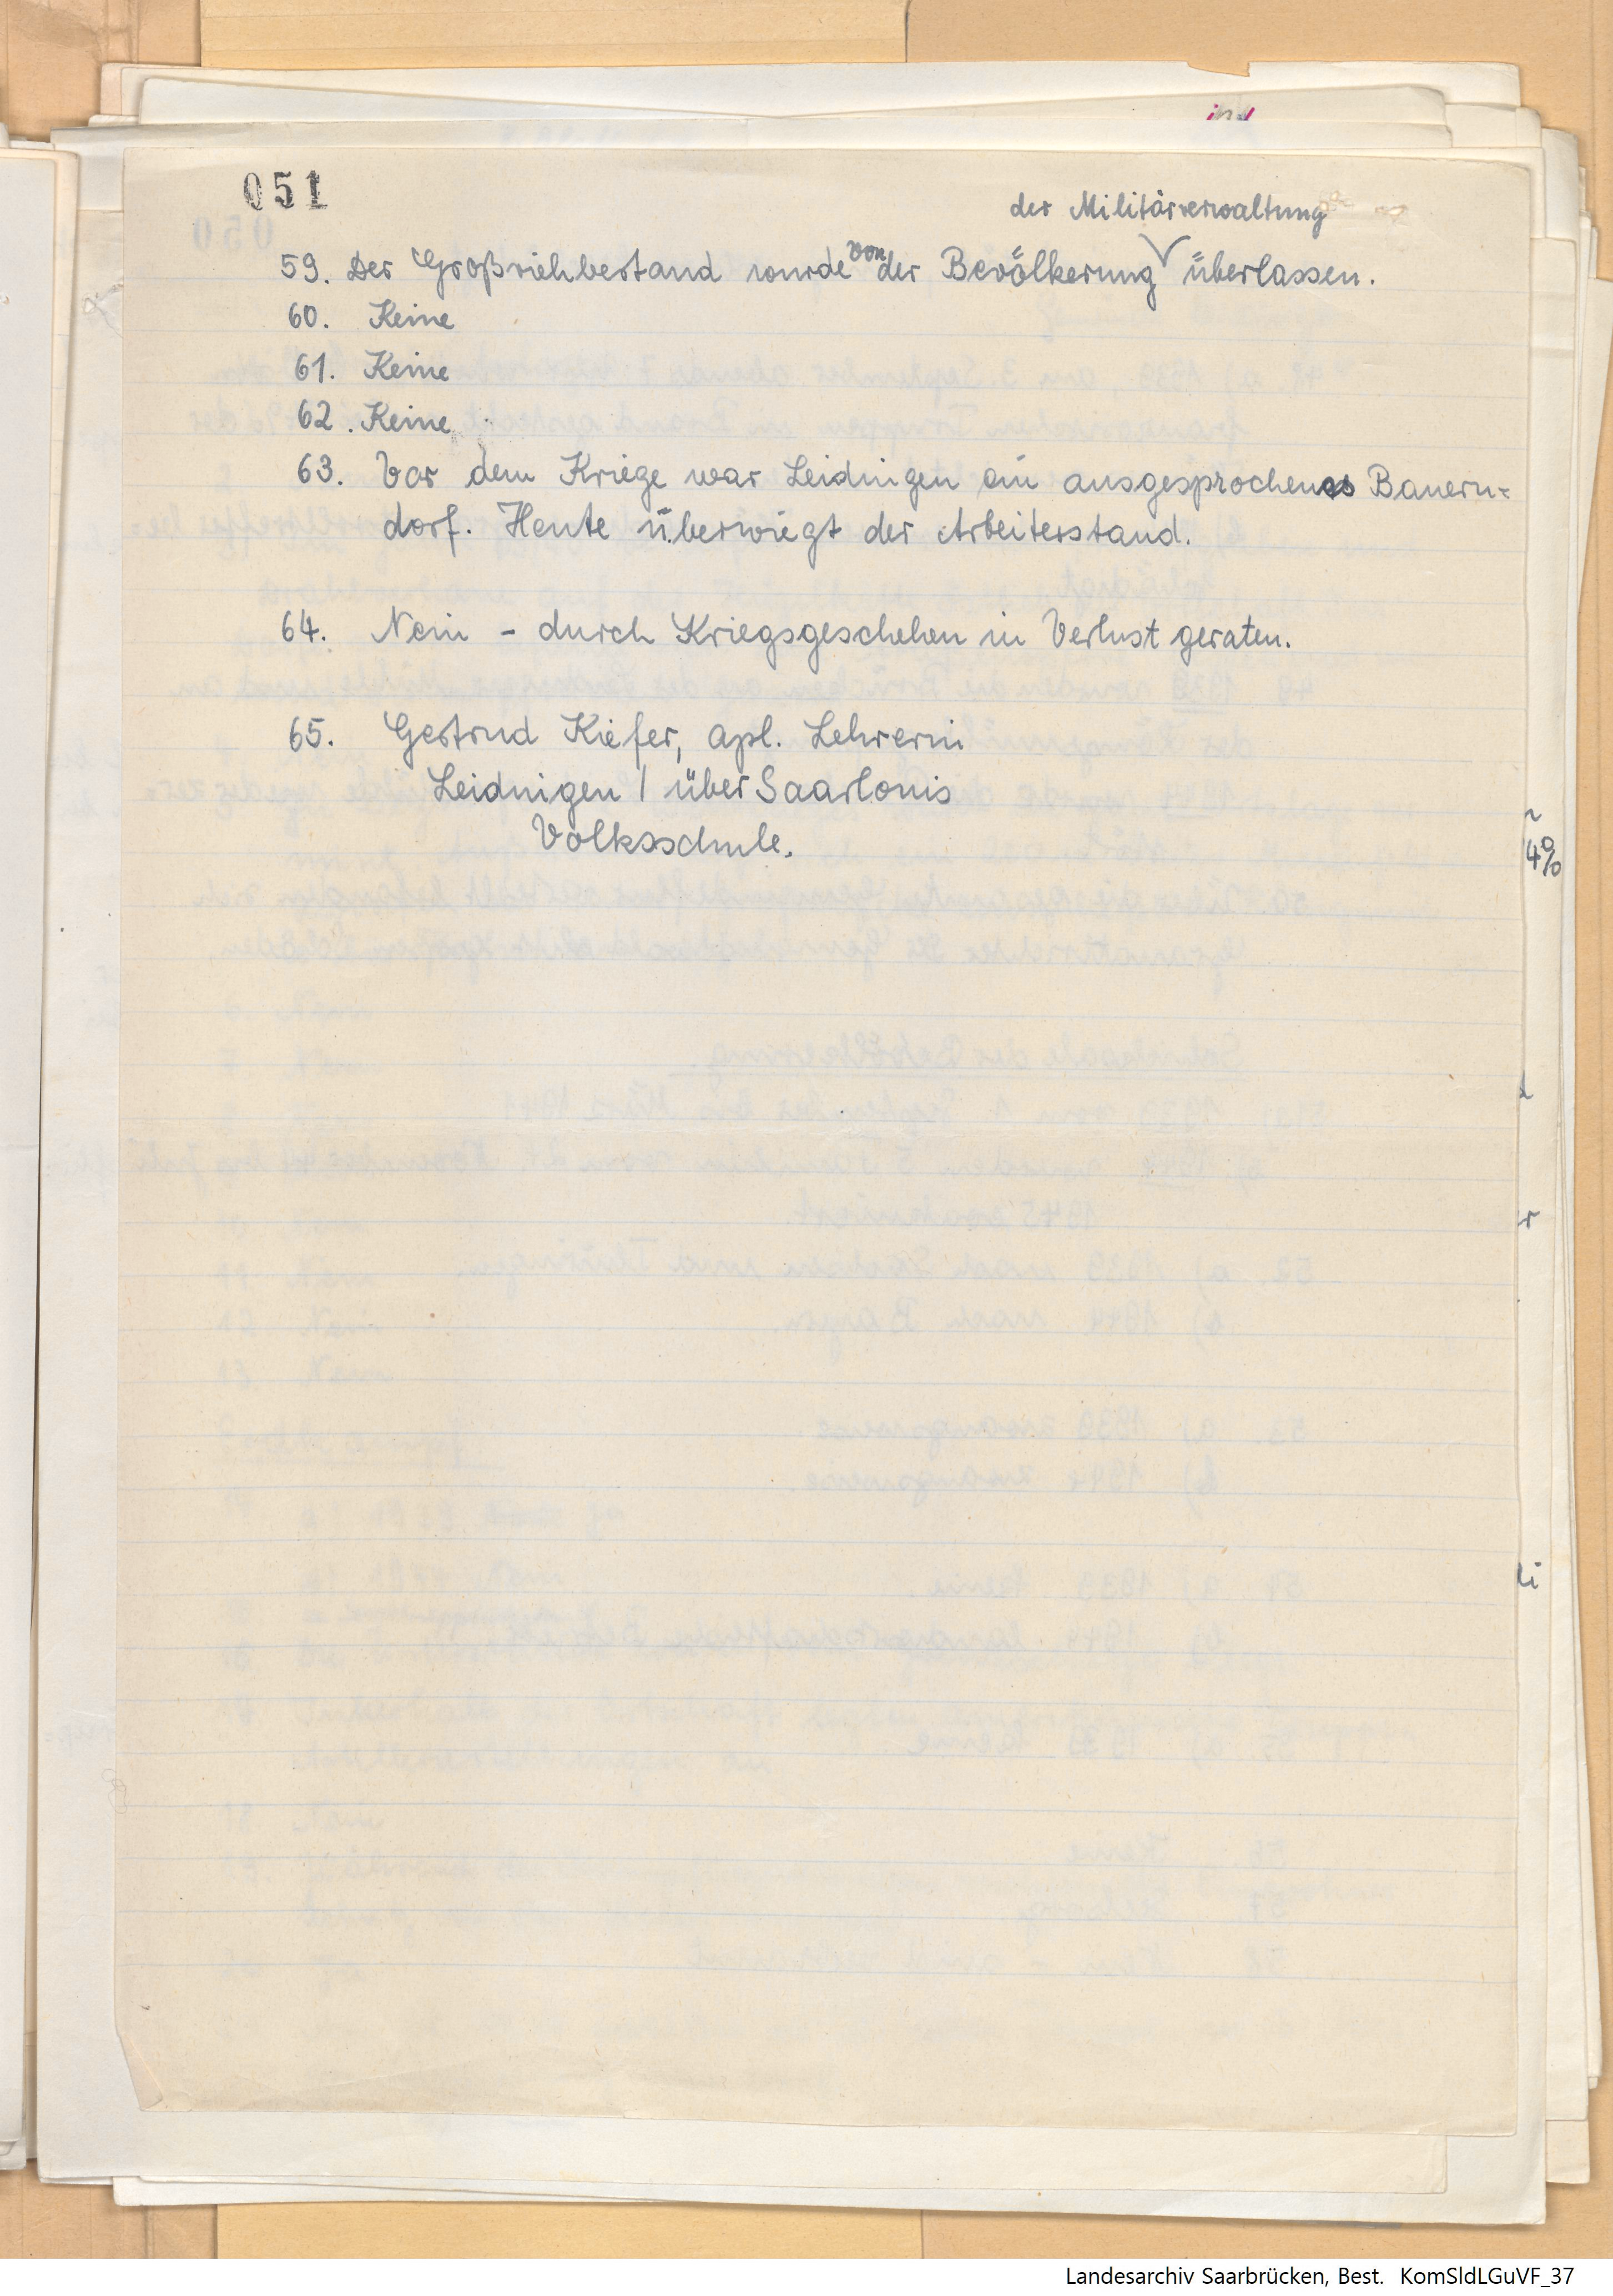 051
der Militärverwaltung
59. Der Großviehbestand wurde von der Bevölkerung überlassen.
60. Keine
61. Keine
62. Keine
63. Vor dem Kriege war Leidingen ein ausgesprochenes Bauern=
dorf. Heute überwiegt der Arbeiterstand.
64. Nein - durch Kriegsgeschehen in Verlust geraten.
65. Gertrud Kiefer, apl. Lehrerin
Leidingen / über Saarlouis
Volksschule.
4%
Landesarchiv Saarbrücken, Best. KomSldLGuVF_37